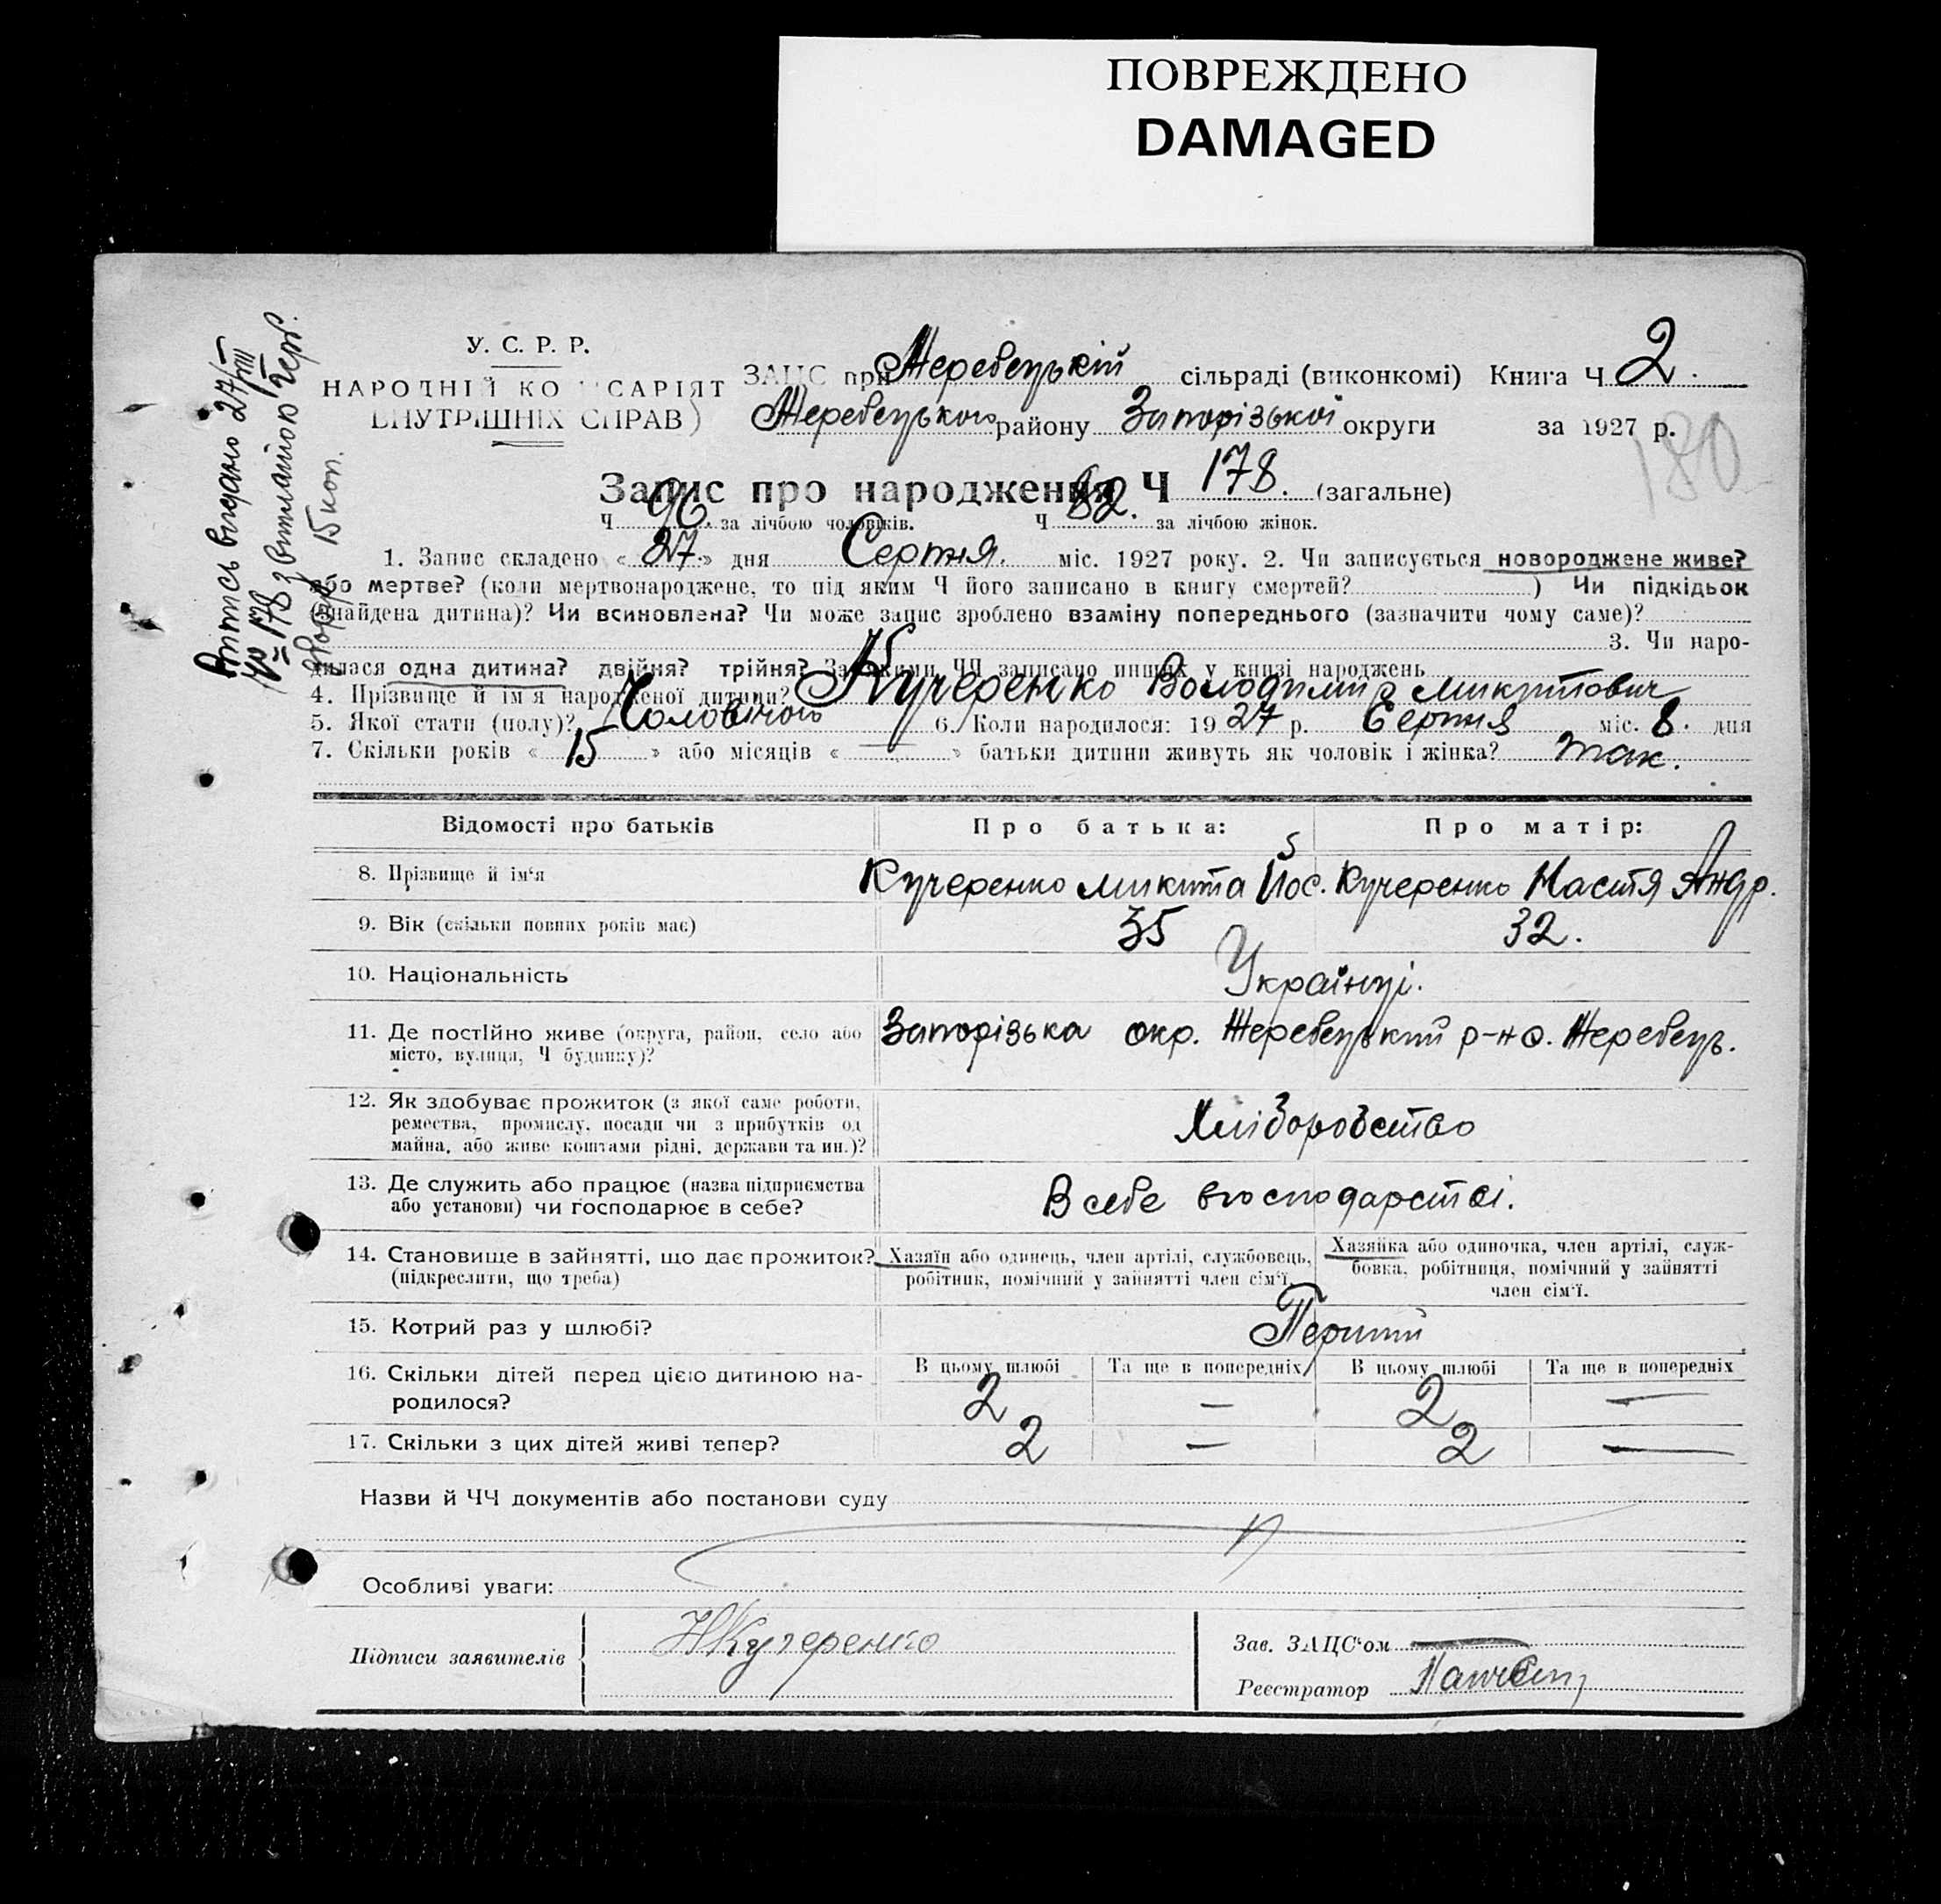 ПОВРЕЖДЕНО
DAMAGED
У. С. Р. Р.
НАРОДНІЙ КОМІСАРІЯТ
ВНУТРІШНІХ СПРАВ)
ЗАЦС при Жеребецькій сільраді (виконкомі) Книга Ч 2.
Жеребецького району Запорізької округи за 1927 р.
180
Запис про народження Ч 178. (загальне)
Ч 96. за лічбою чоловіків. Ч 82. за лічбою жінок.
1. Запис складено « 27 » дня Серпня. міс. 1927 року. 2. Чи записується новороджене живе?
або мертве? (коли мертвонароджене, то під яким Ч його записано в книгу смертей? ) Чи підкідьок
(знайдена дитина)? Чи всиновлена? Чи може запис зроблено взаміну попереднього (зазначити чому саме)?
3. Чи наро-
дилася одна дитина? двійня? трійня? За якими ЧЧ записано инших у книзі народжень
4. Прізвище й ім'я народженої дитини? Кучеренко Володимир Микитович
5. Якої стати (полу)? Чоловічого 6. Коли народилося: 1927 р. Серпня міс. 8. дня
7. Скільки років « 15 » або місяців « — » батьки дитини живуть як чоловік і жінка? так.
Відомості про батьків Про батька: Про матір:
8. Прізвище й ім'я Кучеренко Микита Йос. Кучеренко Настя Андр.
9. Вік (скільки повних років має) 35 32.
10. Національність Українці.
11. Де постІйно живе (округа, район, село або Запорізька окр. Жеребецький р-н с. Жеребець.
місто, вулиця, Ч будинку)?
12. Як здобуває прожиток (з якої саме роботи,
ремества, промислу, посади чи з прибутків од Хліборобство
майна, або живе коштами рідні, держави та ин.)?
13. Де служить або працює (назва підприємства В себе в господарстві.
або установи) чи господарює в себе?
14. Становище в зайнятті, що дає прожиток? Хазяїн або одинець, член артілі, службовець, Хазяйка або одиночка, член артілі, служ-
(підкреслити, що треба) робітник, помічний у зайнятті член сім'ї. бовка, робітниця, помічний у зайнятті
член сім'ї.
15. Котрий раз у шлюбі? Перший
16. Скільки дітей перед цією дитиною на- В цьому шлюбі Та ще в попередніх В цьому шлюбі Та ще в попередніх
родилося? 2 — 2 —
17. Скільки з цих дітей живі тепер? 2 — 2 —
Назви й ЧЧ документів або постанови суду
Особливі уваги:
Підписи заявителів НКучеренко Зав. ЗАЦС'ом
Реєстратор
Випись видано 27/VIII
№ 178 з
15 коп.